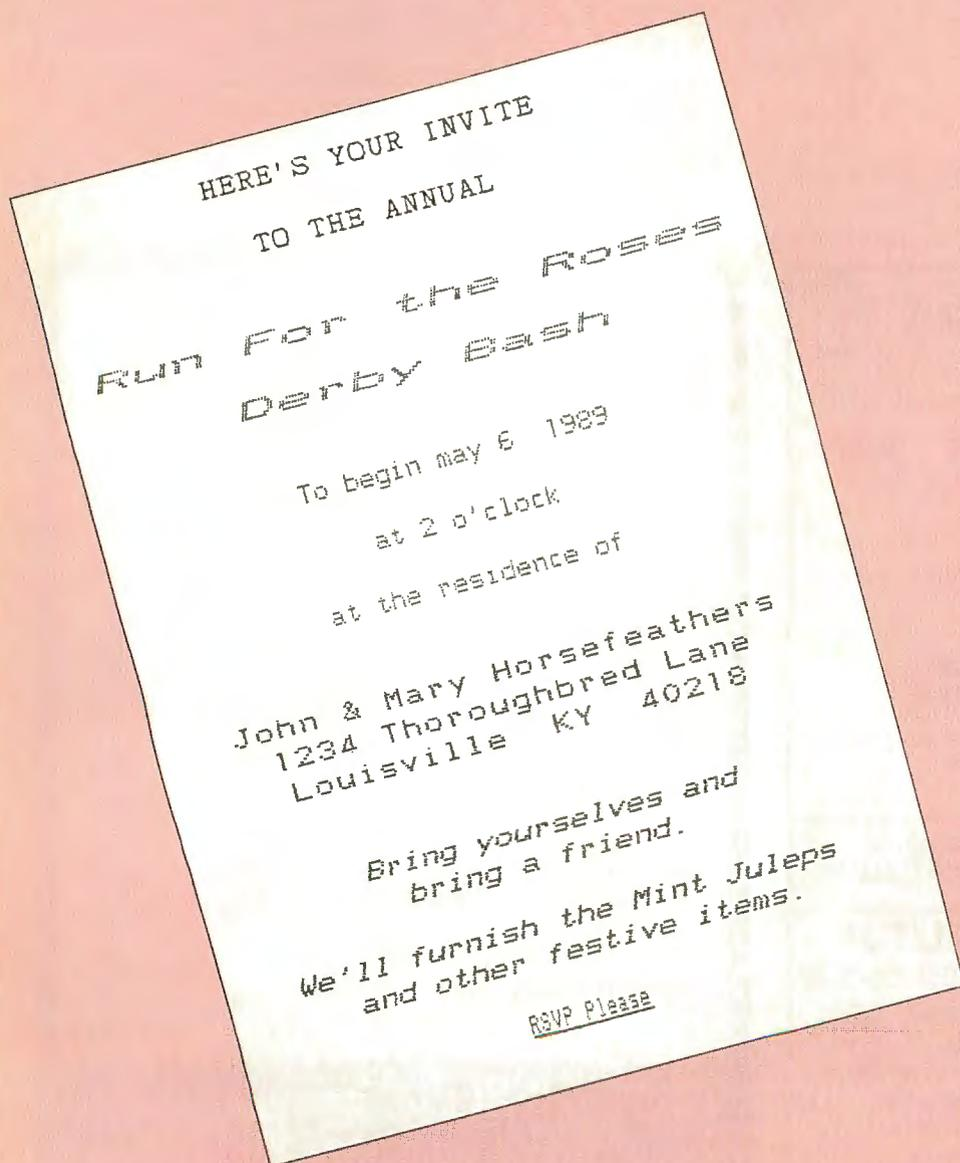 HERE'S YOUR INVITE
TO THE ANNUAL
Run For the Roses
Derby Bash
To begin may 6 1989
at 2 o'clock
at the residence of
John & Mary Horsefeathers
1234 Thoroughbred Lane
Louisville KY 40218
Bring yourselves and
bring a friend.
We'll furnish the Mint Juleps
and other festive items.
RSVP Please